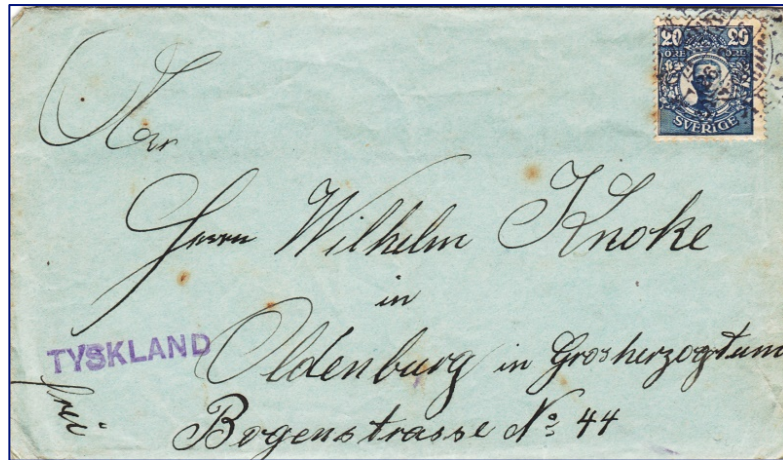 20 20
ÖRE ÖRE
SVERIGE
An
Herrn Wilhelm Knoke
in
TYSKLAND
Oldenburg in Grosherzogtum
frei
Bogenstrasse No. 44